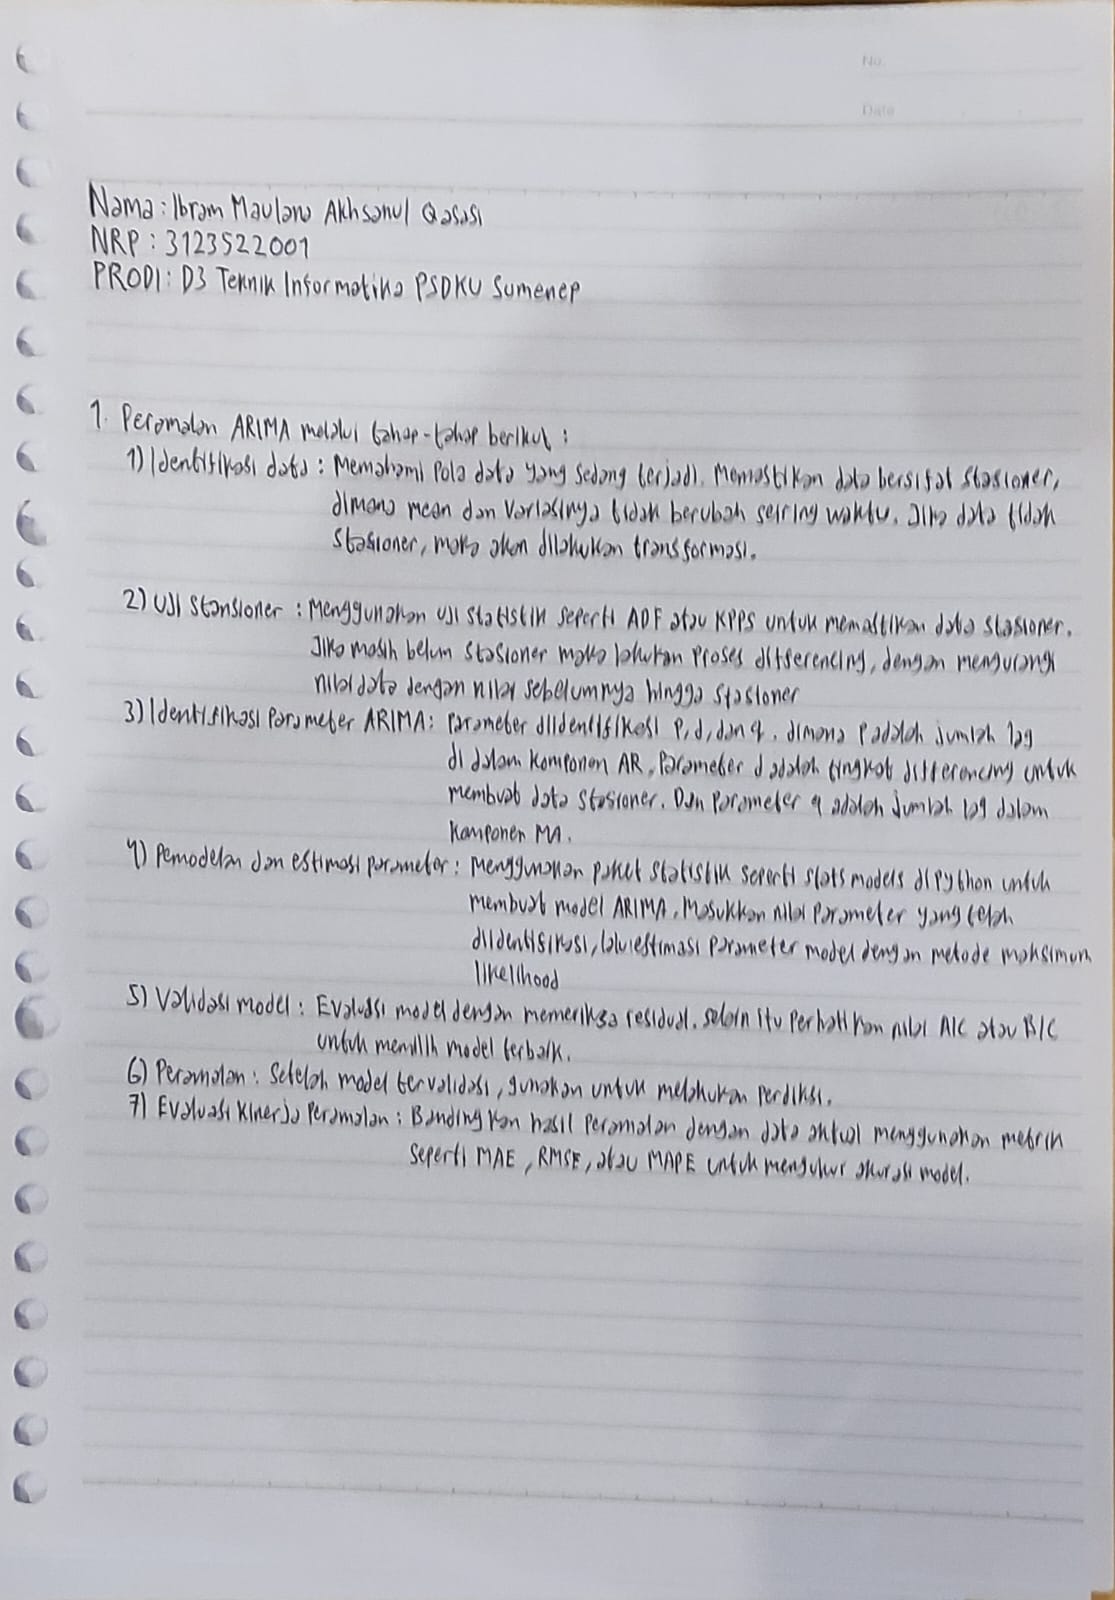 No.
Date
Nama : Ibram Maulana Akhsanul Qasasi
NRP : 3123522001
PRODI : D3 Teknik Informatika PSDKU Sumenep
1. Peramalan ARIMA melalui tahap-tahap berikut :
1) Identifikasi data : Memahami Pola data yang sedang terjadi. Memastikan data bersifat stasioner,
dimana mean dan variasinya tidak berubah seiring waktu. Jika data tidak
stasioner, maka akan dilakukan transformasi.
2) Uji Stansioner : Menggunakan uji statistik seperti ADF atau KPPS untuk memastikan data stasioner.
Jika masih belum stasioner maka lakukan proses differencing, dengan mengurangi
nilai data dengan nilai sebelumnya hingga stasioner
3) Identifikasi Parameter ARIMA : Parameter diidentifikasi P, d, dan q. dimana P adalah jumlah lag
di dalam komponen AR, Parameter d adalah tingkat differencing untuk
membuat data stasioner. Dan Parameter q adalah jumlah lag dalam
komponen MA.
4) Pemodelan dan estimasi parameter : Menggunakan paket statistik seperti stats models di Python untuk
membuat model ARIMA, Masukkan nilai Parameter yang telah
diidentifikasi, lalu estimasi Parameter model dengan metode maksimum
likelihood
5) Validasi model : Evaluasi model dengan memeriksa residual. selain itu Perhatikan nilai AIC atau BIC
untuk memilih model terbaik.
6) Peramalan : Setelah model tervalidasi, gunakan untuk melakukan Perdiksi.
7) Evaluasi Kinerja Peramalan : Bandingkan hasil Peramalan dengan data aktual menggunakan metrik
seperti MAE, RMSE, atau MAPE untuk mengukur akurasi model.